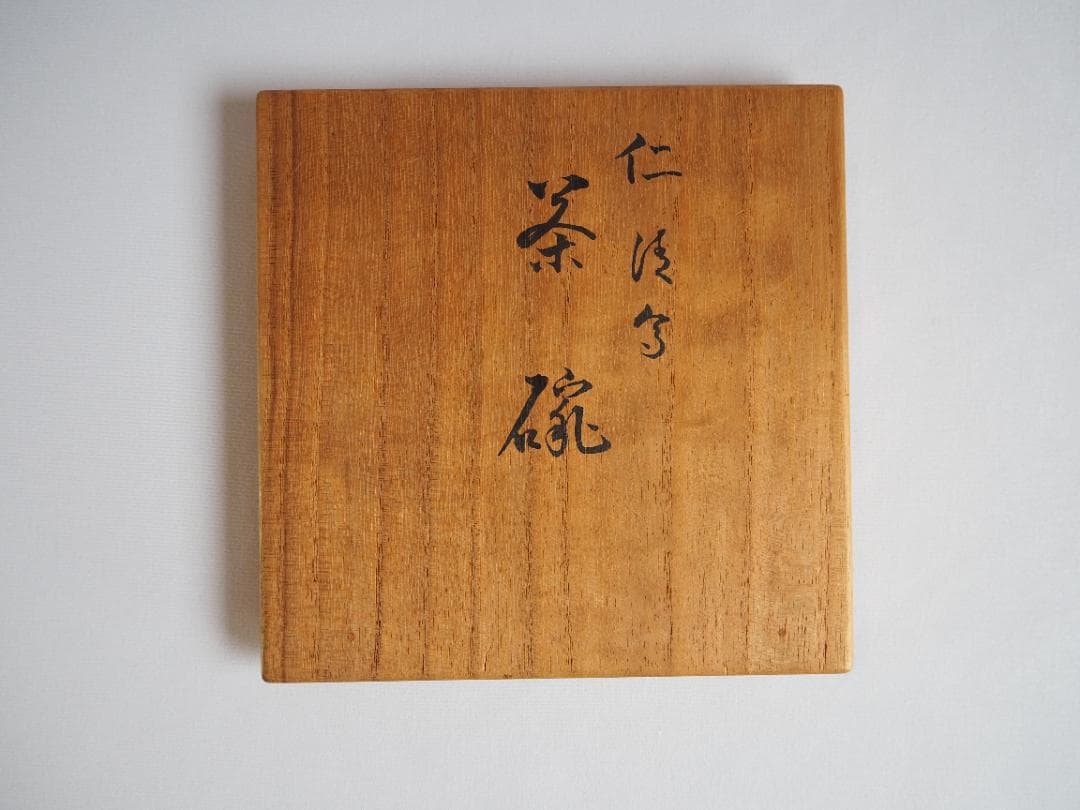 仁清写
茶碗